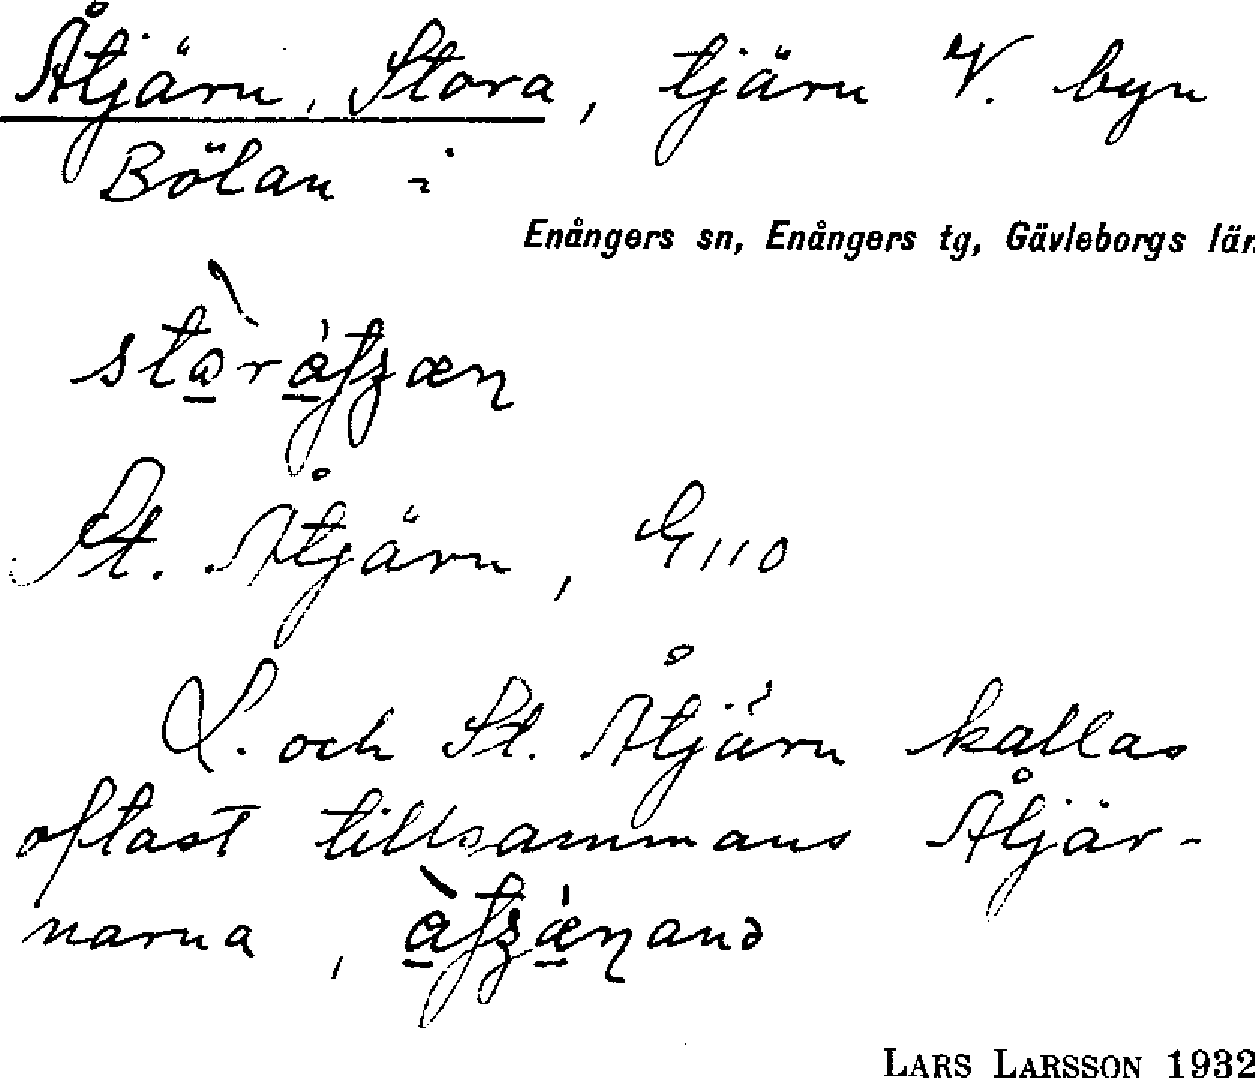 Åtjärn, Stora, tjärn V. byn
Bölan i
Enångers sn, Enångers tg, Gävleborgs län
St. Åtjärn, G 110
L. och St. Åtjärn kallas
oftast tillsammans Åtjär-
narna,
LARS LARSSON 1932